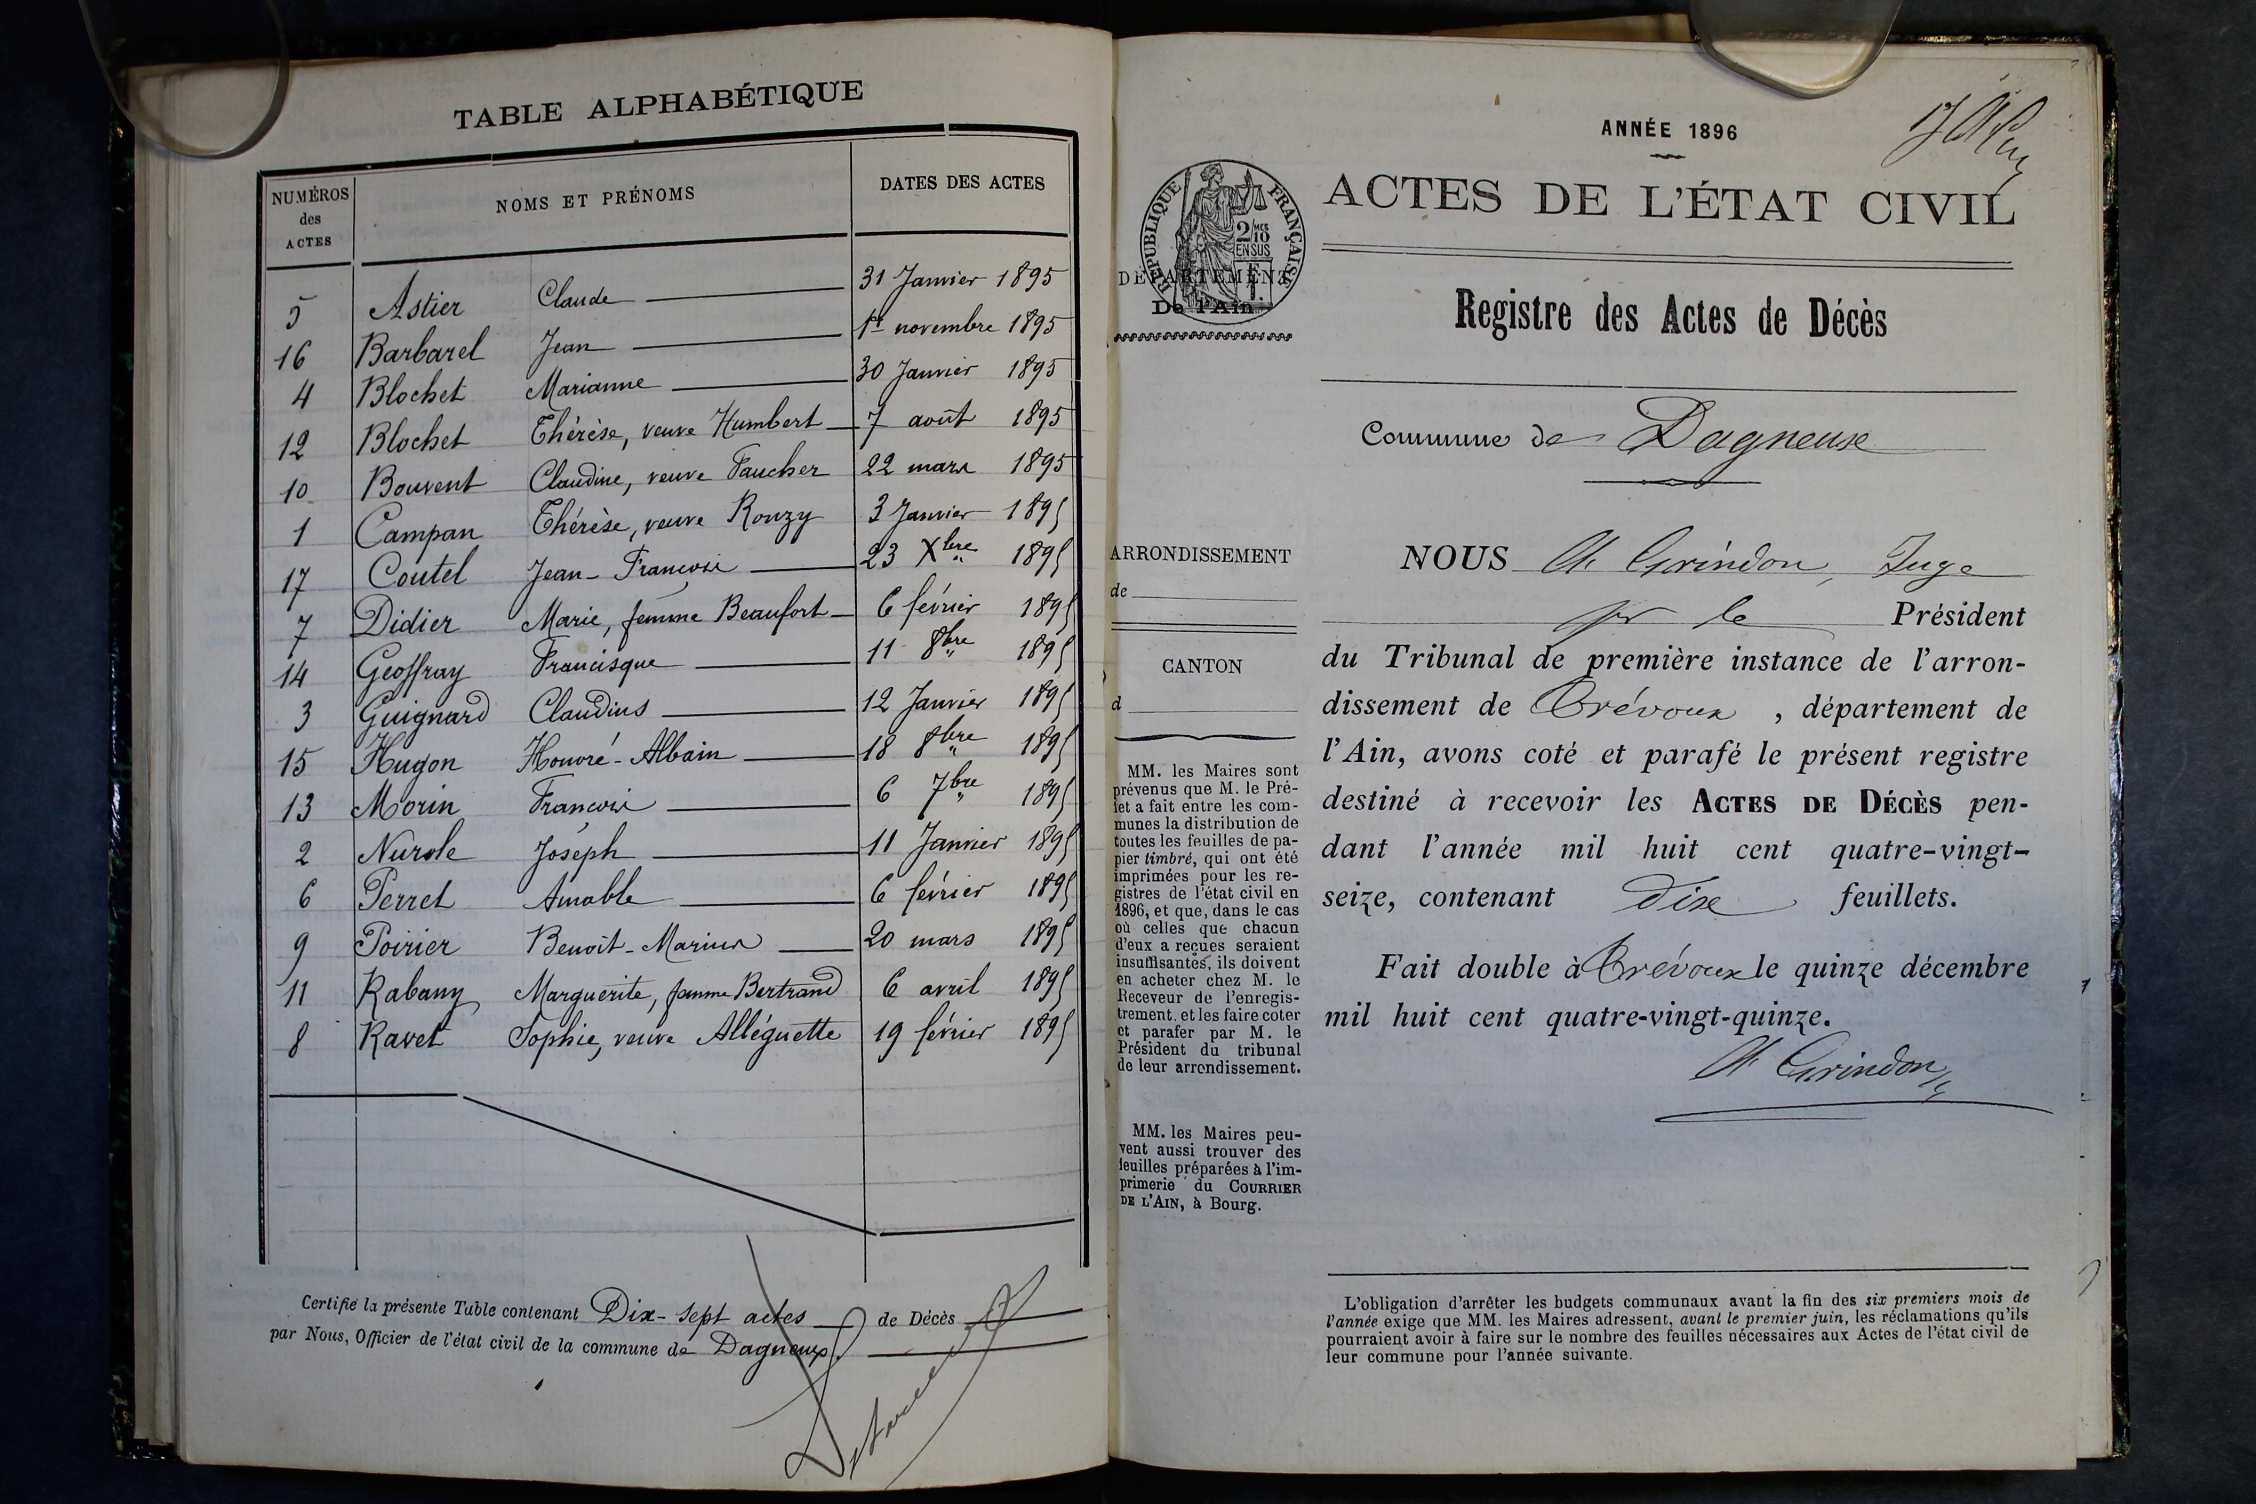 TABLE ALPHABÉTIQUE
NUMÉROS des ACTES NOMS ET PRÉNOMS DATES DES ACTES
5 Astier Claude 31 Janvier 1895
16 Barbarel Jean 1er novembre 1895
4 Blochet Marianne 30 Janvier 1895
12 Blochet Thérèse, veuve Humbert 7 août 1895
10 Bouvent Claudine, veuve Faucher 22 mars 1895
1 Campan Thérèse, veuve Ronzy 3 Janvier 1895
17 Coutel Jean-François 23 Xbre 1895
7 Didier Marie, femme Beaufort 6 février 1895
14 Geoffray Francisque 11 8bre 1895
3 Guignard Claudius 12 Janvier 1895
15 Hugon Honoré-Albain 18 8bre 1895
13 Morin François 6 7bre 1895
2 Nurole Joseph 11 Janvier 1895
6 Perret Aimable 6 février 1895
9 Poirier Benoît-Marius 20 mars 1895
11 Rabany Marguerite, femme Bertrand 6 avril 1895
8 Ravet Sophie, veuve Alléguette 19 février 1895
Certifié la présente Table contenant Dix-sept actes de Décès
par Nous, Officier de l'état civil de la commune de Dagneux.
ANNÉE 1896
ACTES DE L'ÉTAT CIVIL
RÉPUBLIQUE FRANÇAISE
2/10 EN SUS
DÉPARTEMENT
De l'Ain
Registre des Actes de Décès
Commune de Dagneux
ARRONDISSEMENT
de
CANTON
d
MM. les Maires sont
prévenus que M. le Pré-
fet a fait entre les com-
munes la distribution de
toutes les feuilles de pa-
pier timbré, qui ont été
imprimées pour les re-
gistres de l'état civil en
1896, et que, dans le cas
où celles que chacun
d'eux a reçues seraient
insuffisantes, ils doivent
en acheter chez M. le
Receveur de l'enregis-
trement. et les faire coter
et parafer par M. le
Président du tribunal
de leur arrondissement.
MM. les Maires peu-
vent aussi trouver des
feuilles préparées à l'im-
primerie du COURRIER
DE L'AIN, à Bourg.
NOUS Ch Grindon, Juge
pr le Président
du Tribunal de première instance de l'arron-
dissement de Trévoux, département de
l'Ain, avons coté et parafé le présent registre
destiné à recevoir les ACTES DE DÉCÈS pen-
dant l'année mil huit cent quatre-vingt-
seize, contenant dix feuillets.
Fait double à Trévoux le quinze décembre
mil huit cent quatre-vingt-quinze.
Ch Grindon
L'obligation d'arrêter les budgets communaux avant la fin des six premiers mois de
l'année exige que MM. les Maires adressent, avant le premier juin, les réclamations qu'ils
pourraient avoir à faire sur le nombre des feuilles nécessaires aux Actes de l'état civil de
leur commune pour l'année suivante.